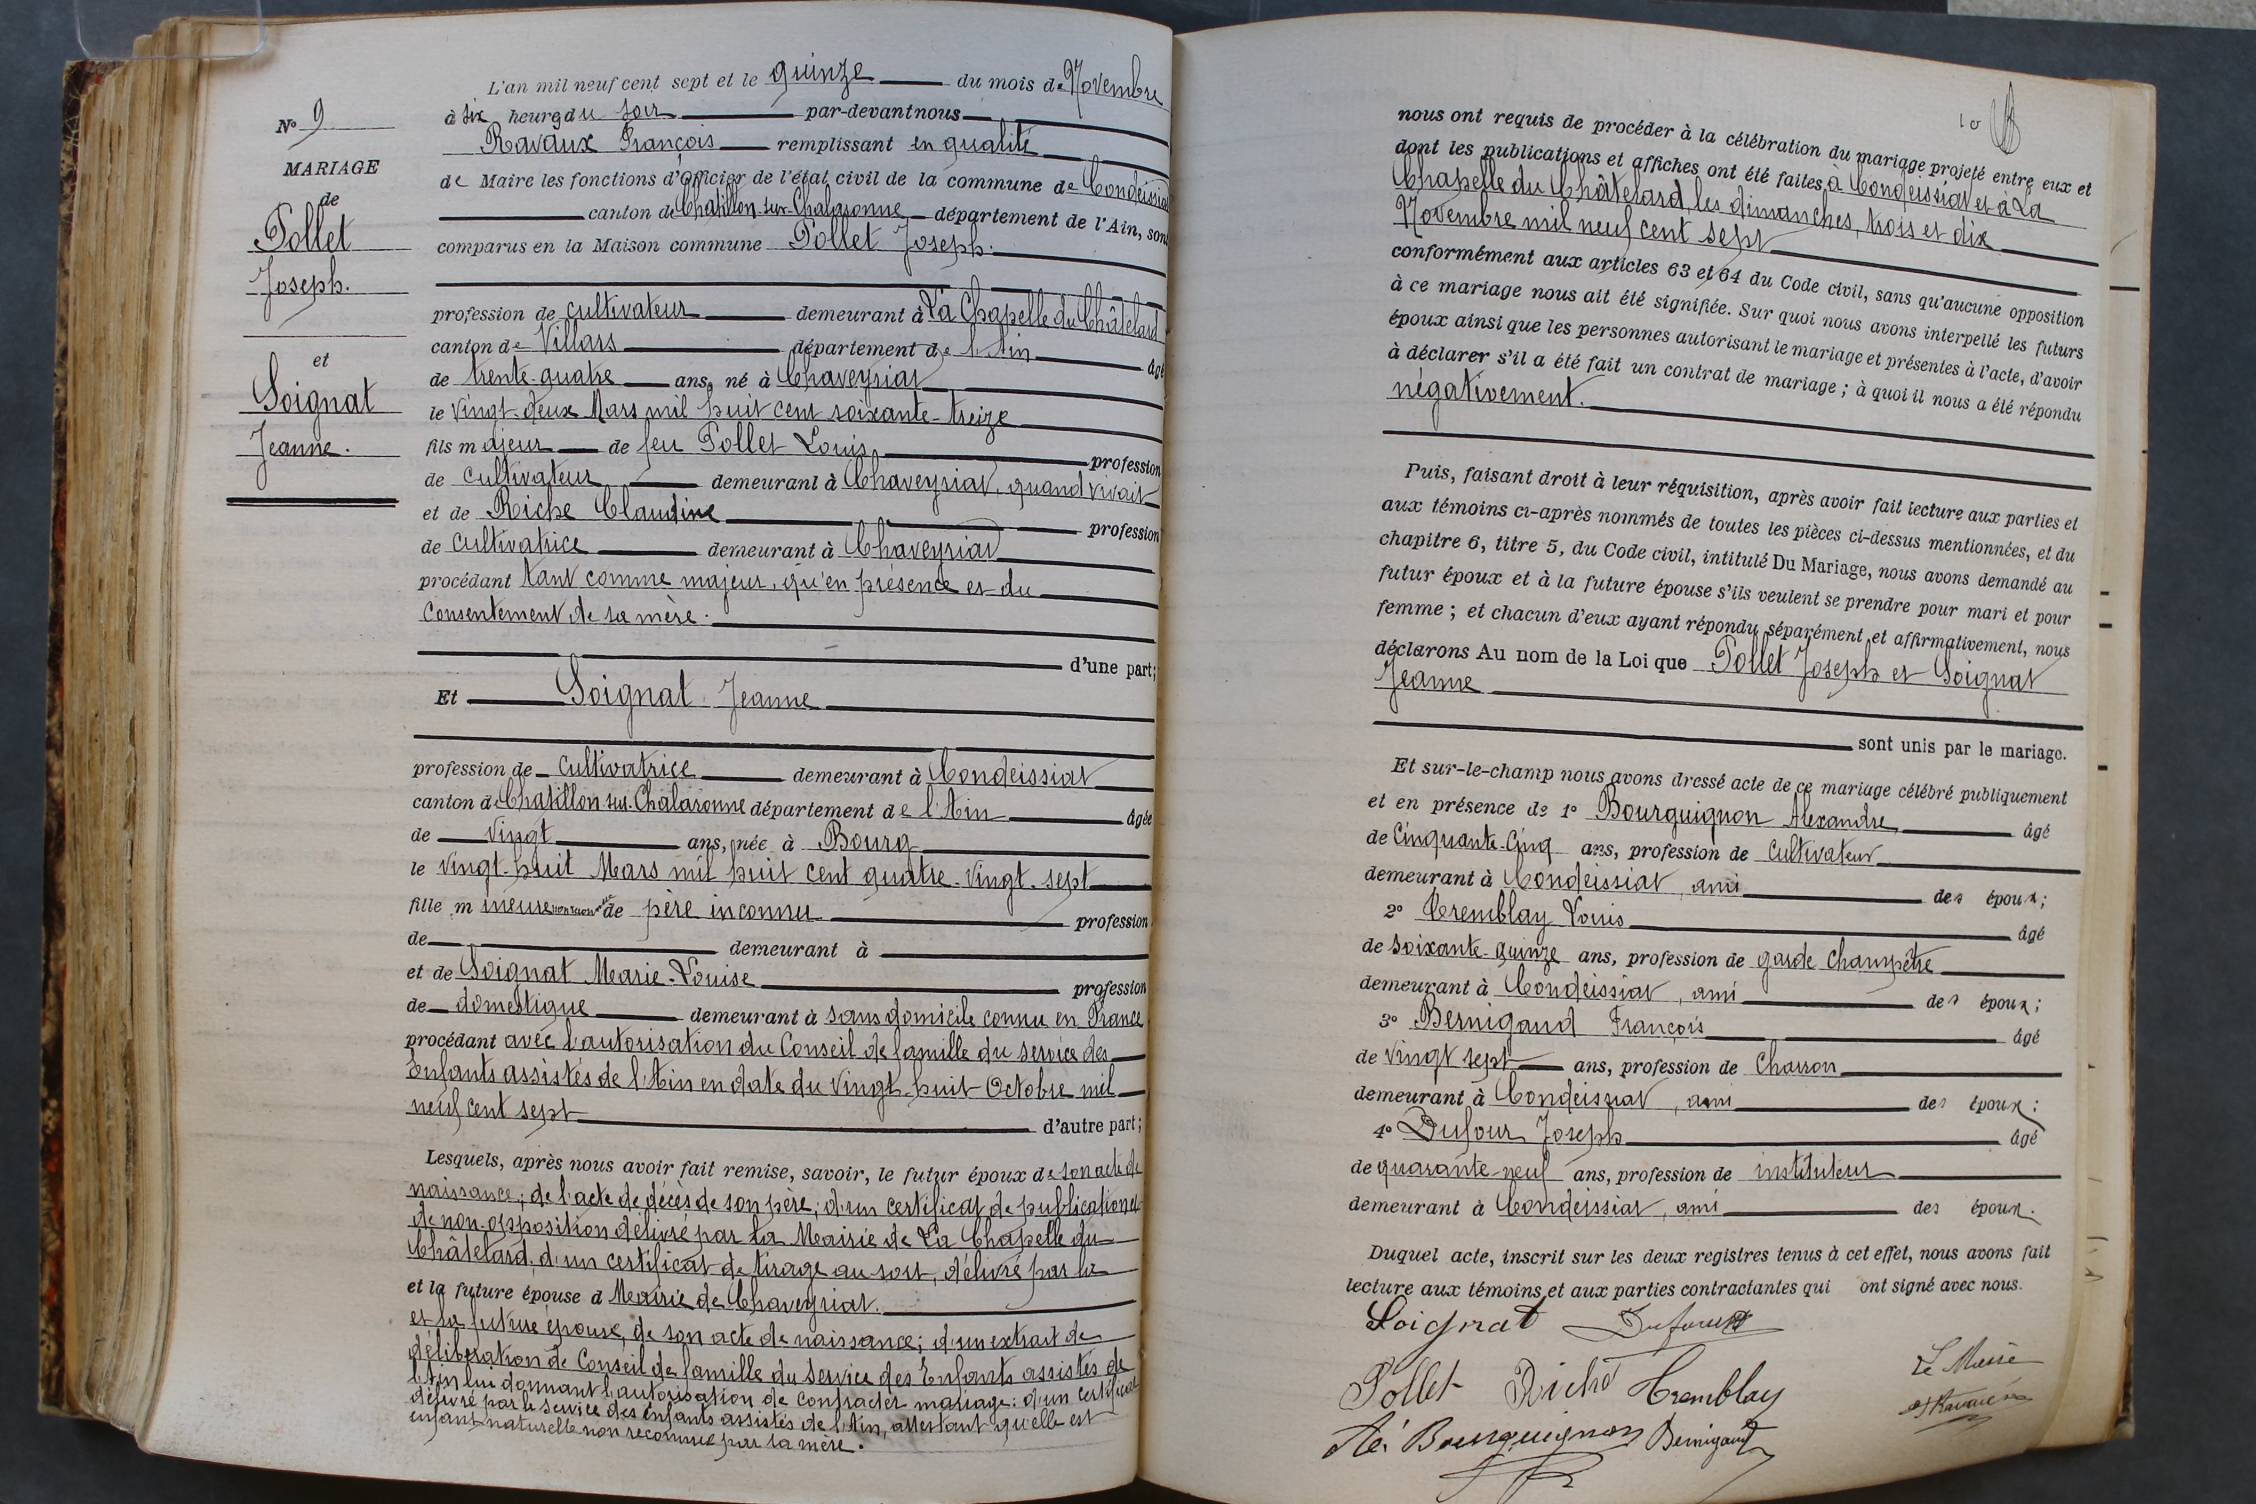 L'an mil neuf cent sept et le quinze du mois de Novembre
à six heures du soir par-devant nous
Ravaux François remplissant en qualité
de Maire les fonctions d'officier de l'état civil de la commune de Condeissiat
canton de Chatillon-sur-Chalaronne département de l'Ain, sont
comparus en la Maison commune Pollet Joseph.
profession de cultivateur demeurant à La Chapelle du Châtelard
canton de Villars département de l'Ain âgé
de trente-quatre ans, né à Chaveyriat
le vingt-deux Mars mil huit cent soixante-treize
fils majeur de feu Pollet Louis profession
de cultivateur demeurant à Chaveyriat, quand vivait
et de Riche Claudine profession
de cultivatrice demeurant à Chaveyriat
procédant tant comme majeur, qu'en présence et du
consentement de sa mère.
d'une part;
Et Soignat Jeanne
profession de cultivatrice demeurant à Condeissiat
canton de Chatillon-sur-Chalaronne département de l'Ain âgée
de vingt ans, née à Bourg
le vingt-huit Mars mil huit cent quatre-vingt-sept
fille mineure de père inconnu profession
de demeurant à
et de Soignat Marie-Louise profession
de domestique demeurant à sans domicile connu en France
procédant avec l'autorisation du Conseil de famille du service des
Enfants assistés de l'Ain en date du vingt-huit Octobre mil
neuf cent sept
d'autre part;
Lesquels, après nous avoir fait remise, savoir, le futur époux de son acte de
naissance; de l'acte de décès de son père; d'un certificat de publication et
de non-opposition délivré par la Mairie de La Chapelle du
Châtelard, d'un certificat de tirage au sort, délivré par la
et la future épouse d Mairie de Chaveyriat.
et la future épouse, de son acte de naissance; d'un extrait de
délibération de Conseil de famille du Service des Enfants assistés de
l'Ain lui donnant l'autorisation de contracter mariage: d'un certificat
délivré par le service des enfants assistés de l'Ain, attestant qu'elle est
enfant naturelle non reconnue par sa mère.
No 9
MARIAGE
de
Pollet
Joseph.
et
Soignat
Jeanne.
10
nous ont requis de procéder à la célébration du mariage projeté entre eux et
dont les publications et affiches ont été faites à Condeissiat et à La
Chapelle du Châtelard, les dimanches, trois et dix
Novembre mil neuf cent sept
conformément aux articles 63 et 64 du Code civil, sans qu'aucune opposition
à ce mariage nous ait été signifiée. Sur quoi nous avons interpellé les futurs
époux ainsi que les personnes autorisant le mariage et présentes à l'acte, d'avoir
à déclarer s'il a été fait un contrat de mariage; à quoi il nous a été répondu
négativement.
Puis, faisant droit à leur réquisition, après avoir fait lecture aux parties et
aux témoins ci-après nommés de toutes les pièces ci-dessus mentionnées, et du
chapitre 6, titre 5, du Code civil, intitulé Du Mariage, nous avons demandé au
futur époux et à la future épouse s'ils veulent se prendre pour mari et pour
femme; et chacun d'eux ayant répondu séparément et affirmativement, nous
déclarons Au nom de la Loi que Pollet Joseph et Soignat
Jeanne
sont unis par le mariage.
Et sur-le-champ nous avons dressé acte de ce mariage célébré publiquement
et en présence de 1° Bourguignon Alexandre âgé
de Cinquante-Cinq ans, profession de cultivateur
demeurant à Condeissiat, ami des époux;
2° Tremblay Louis âgé
de soixante-quinze ans, profession de garde champêtre
demeurant à Condeissiat, ami des époux;
3° Bernigaud François âgé
de vingt sept ans, profession de Charron
demeurant à Condeissiat, ami des époux;
4° Dufour Joseph âgé
de quarante-neuf ans, profession de instituteur
demeurant à Condeissiat, ami des époux.
Duquel acte, inscrit sur les deux registres tenus à cet effet, nous avons fait
lecture aux témoins et aux parties contractantes qui ont signé avec nous.
Soignat Dufour
Pollet Riche Tremblay Le Maire
Al. Bourguignon Bernigaud F Ravaux